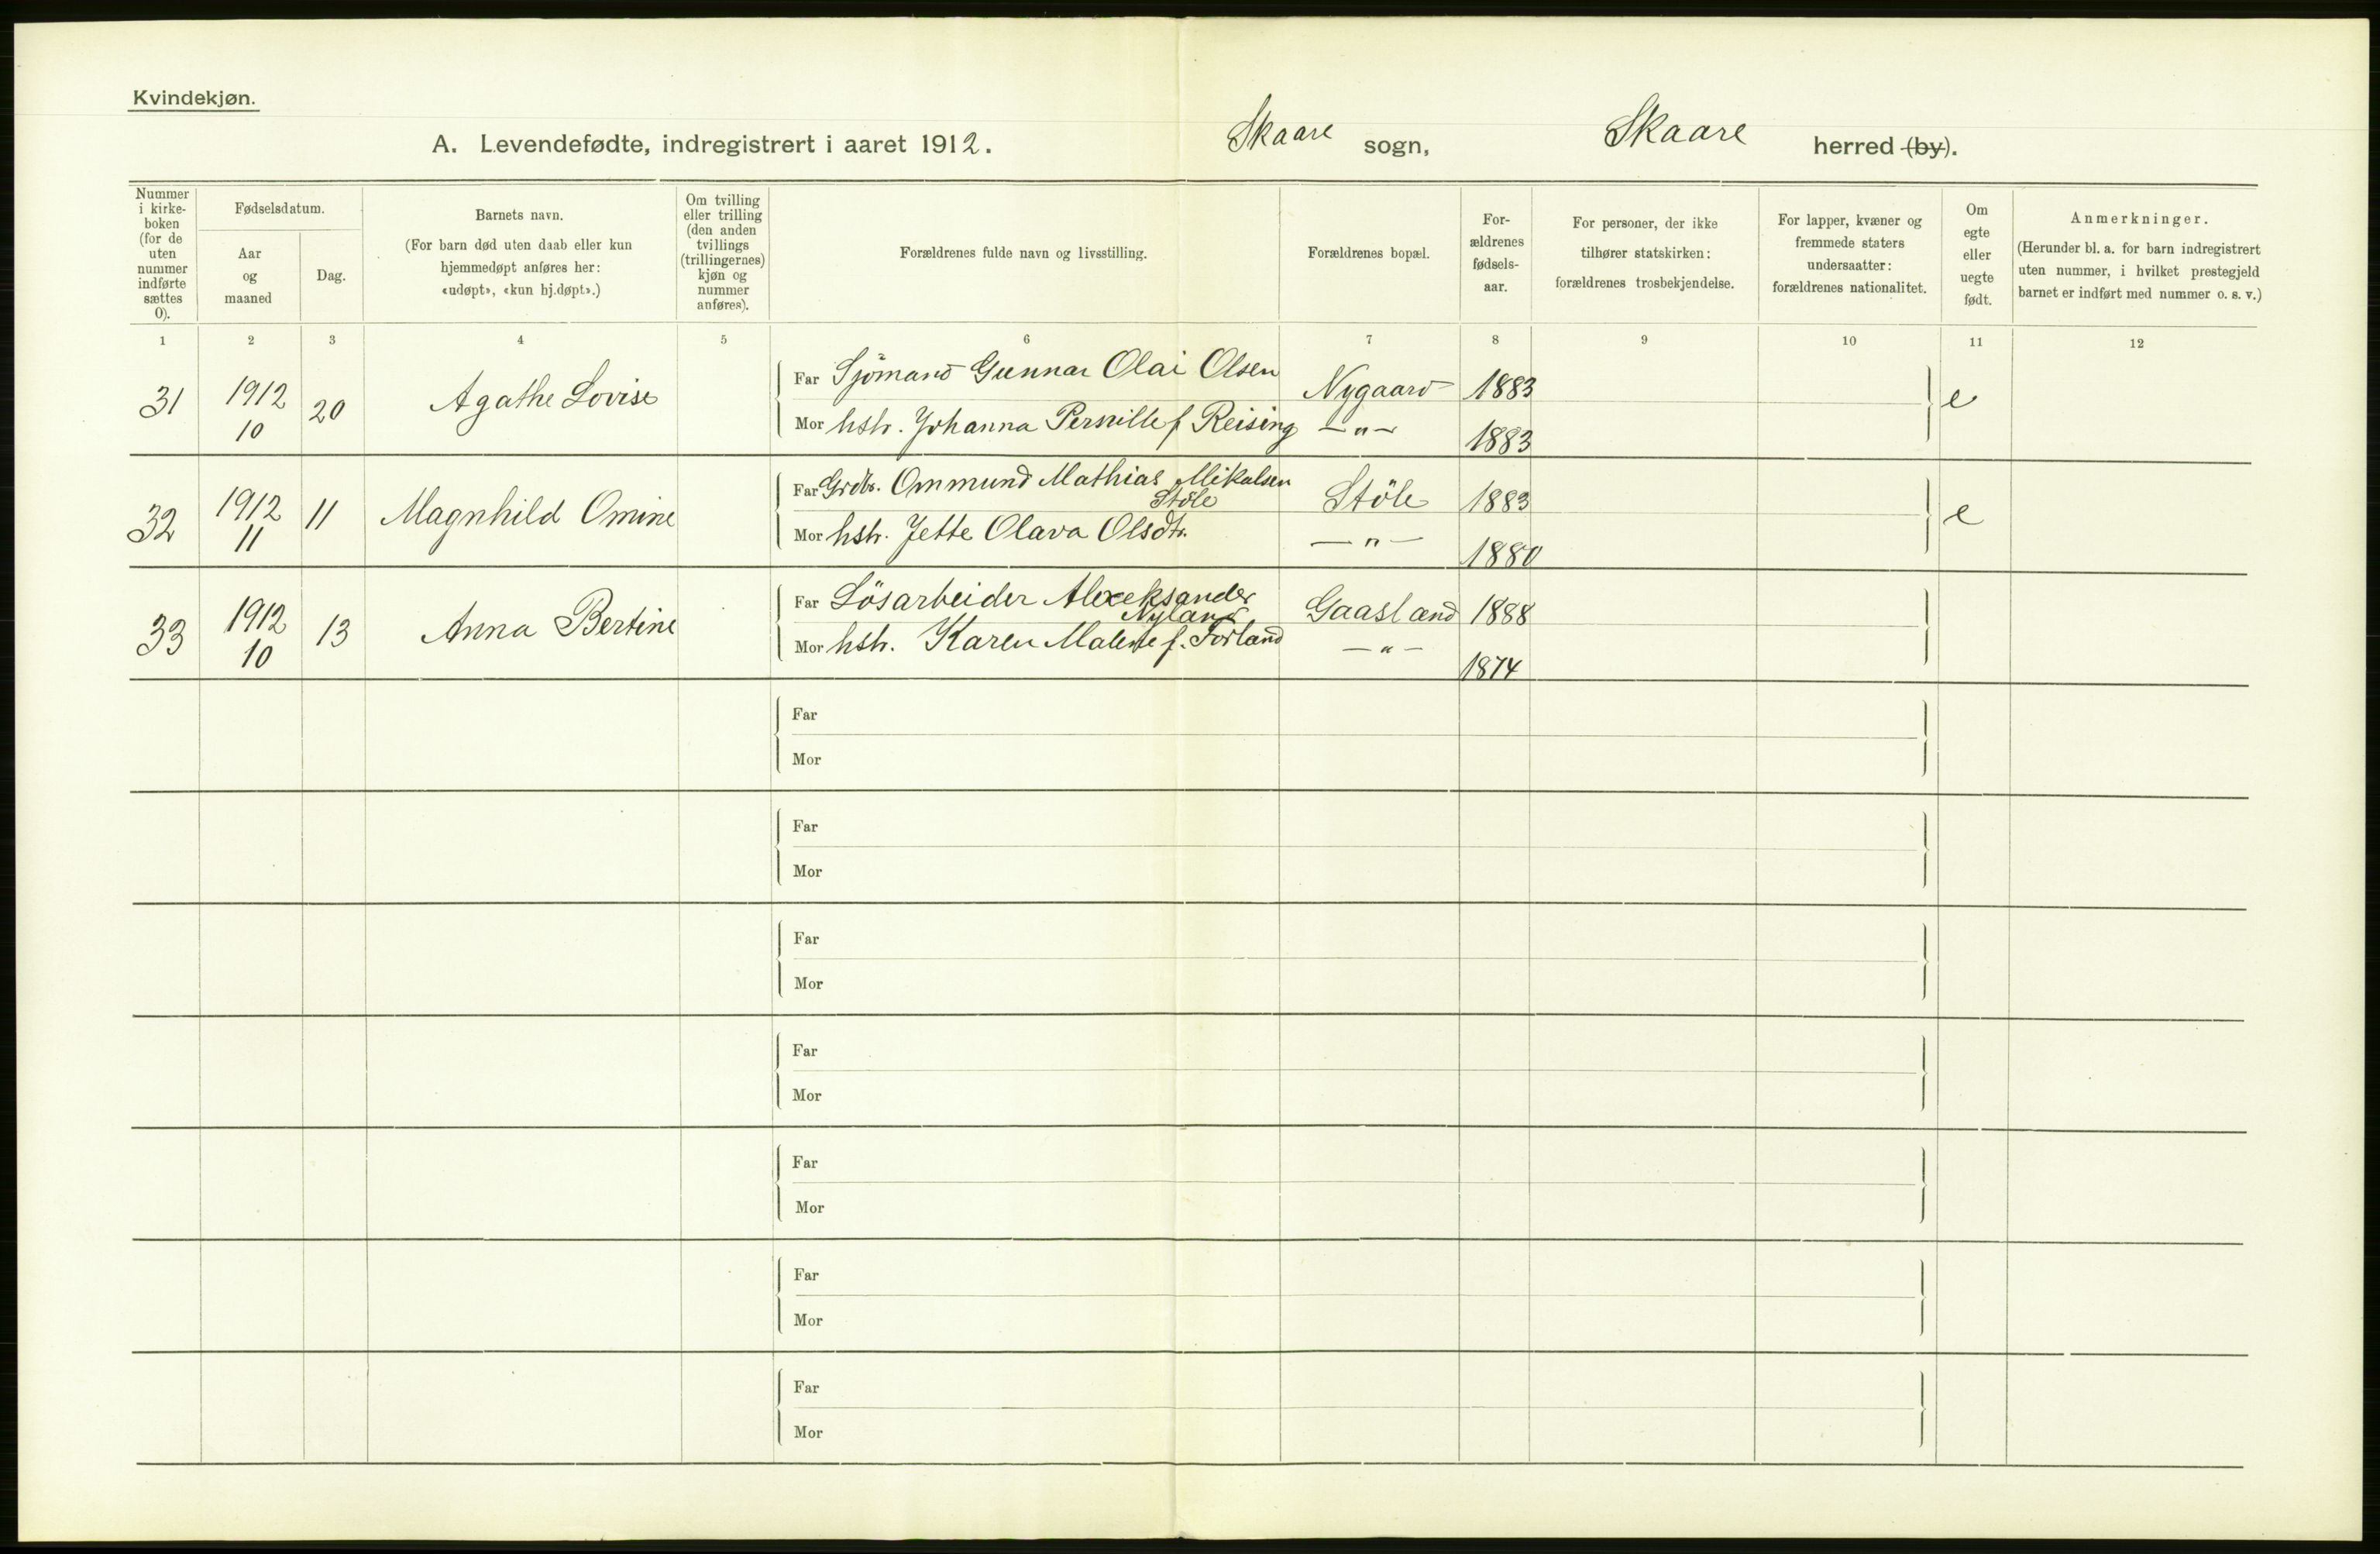 Kvindekjøn.
A. Levendefødte, indregistrert i aaret 1912.
Skaare sogn,
Skaare herred (by).
Nummer i kirke-boken (for de uten nummer indførte sættes 0).
Fødselsdatum.
Aar og maaned
Dag.
Barnets navn.
(For barn død uten daab eller kun hjemmedøpt anføres her: «udøpt», «kun hj.døpt».)
Om tvilling eller trilling (den anden tvillings (trillingernes) kjøn og nummer anføres).
Forældrenes fulde navn og livsstilling.
Forældrenes bopæl.
For-ældrenes fødsels-aar.
For personer, der ikke tilhører statskirken: forældrenes trosbekjendelse.
For lapper, kvæner og fremmede staters undersaatter: forældrenes nationalitet.
Om egte eller uegte født.
Anmerkninger.
(Herunder bl. a. for barn indregistrert uten nummer, i hvilket prestegjeld barnet er indført med nummer o. s. v.)
1 2 3 4 5 6 7 8 9 10 11 12
31 1912 10 20 Agathe Lovise
Far Sjömand Gunnar Olai Olsen Nygaard 1883 e
Mor hstr. Johanna Pernille f Reising —"— 1883
32 1912 11 11 Magnhild Omine
Far Grdbr. Ommund Mathias Mikalsen Stöle Stöle 1883 e
Mor hstr. Jette Olava Olsdtr. —"— 1880
33 1912 10 13 Anna Bertine
Far Lösarbeider Alexeksander Nyland Gaasland 1888
Mor hstr. Karen Malene f. Forland —"— 1874
Far
Mor
Far
Mor
Far
Mor
Far
Mor
Far
Mor
Far
Mor
Far
Mor